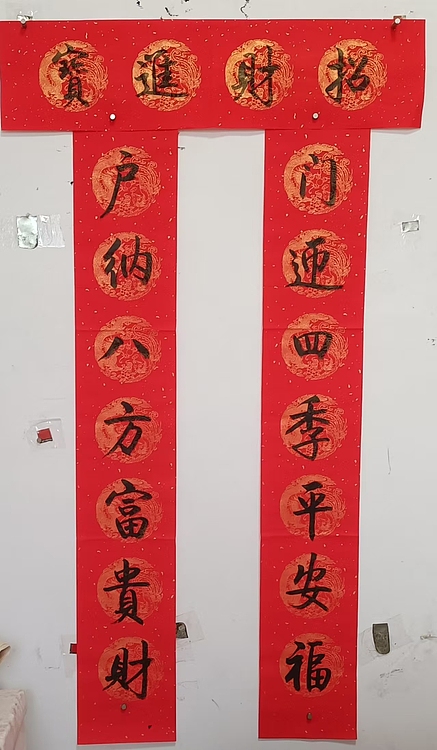 招財進寳
门迎四季平安福
户纳八方富貴財